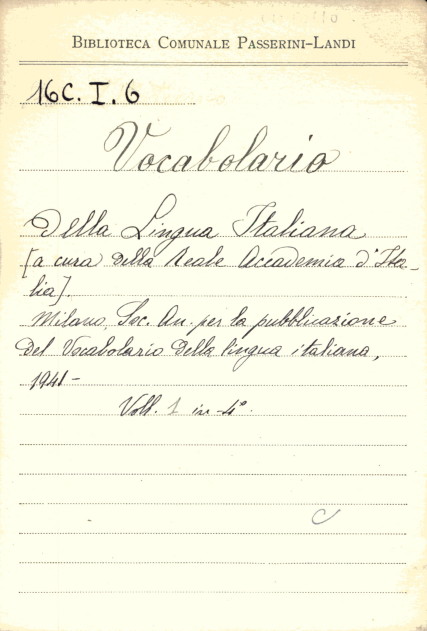 BIBLIOTECA COMUNALE PASSERINI-LANDI
16C. I. 6
Vocabolario
della Lingua Italiana
[a cura della Reale Accademia d'Ita-
lia].
Milano, Soc. An. per la pubblicazione
del Vocabolario della lingua italiana,
1941-
Voll. 1 in-4°.
C